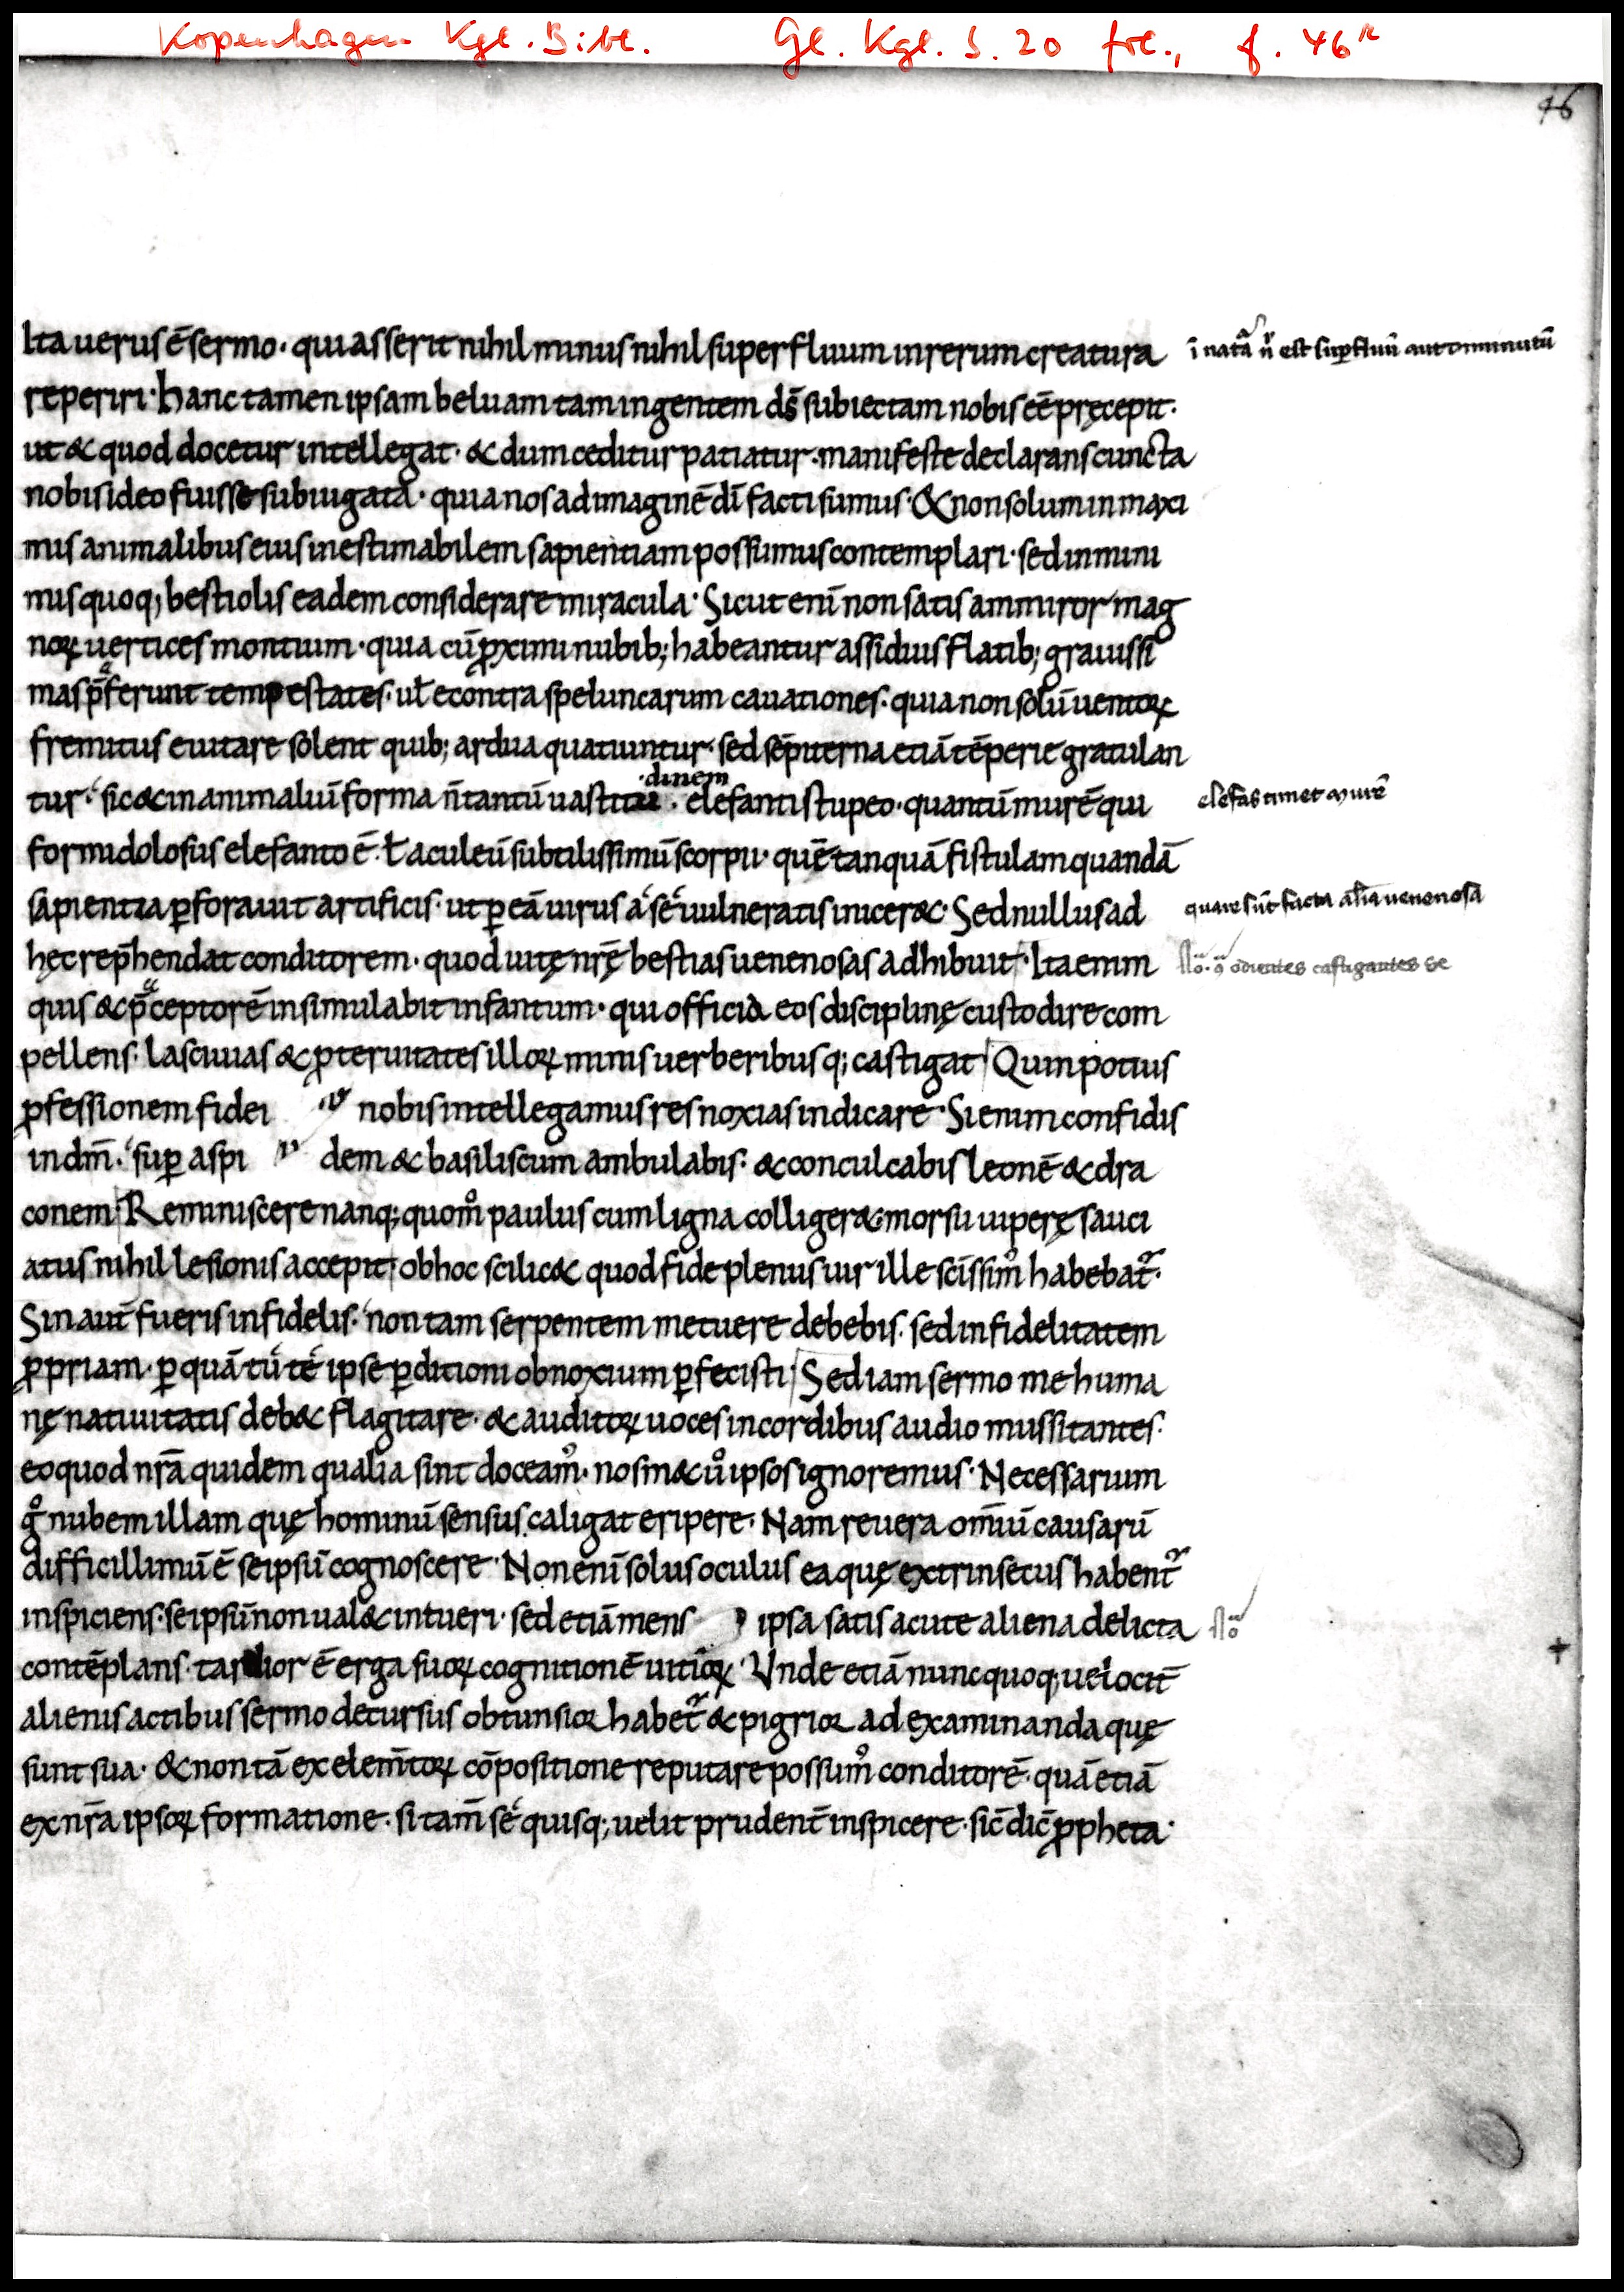 Kopenhagen Kgl. Bibl. Gl. Kgl. S. 20 fol., f. 46r
46
Ita uerus ē sermo · qui asserit nihil minus nihil superfluum in rerum creatura
reperiri · hanc tamen ipsam beluam tam ingentem ds̄ subiectam nobis eē pręcepit ·
ut & quod docetur intellegat · & dum ceditur patiatur · manifeste declarans cuncta
nobis ideo fuisse subiugata · quia nos ad imaginē dī facti sumus · & non solum in maxi
mis animalibus eius inestimabilem sapientiam possumus contemplari · sed in mini
mis quoq; bestiolis eadem considerare miracula · Sicut enī non satis ammiror mag
noꝝ uertices montium · quia cū ꝓximi nubib; habeantur assiduis flatib; grauissi
mas p̄ferunt tempestates · uł econtra speluncarum cauationes · quia non solū uentoꝝ
fremitus euitare solent quib; ardua quatiuntur · sed sēpiterna etiā tēperie gratulan
tur · sic & in animaliuī forma n̄ tantū uastitu · dinem elefanti stupeo · quantū murē qui
formidolosus elefanto ē · ł aculeū subtilissimū scorpii · quē tanquā fistulam quandā
sapientia ꝑforauit artificis · ut ꝑ eā uirus a se uulneratis inicer& · Sed nullus ad
hęc rep̄hendat conditorem · quod uitę nr̄ę bestias uenenosas adhibuit · Ita enim
quis & p̄ceptorē insimulabit infantum · qui officia eos disciplinę custodire com
pellens · lasciuias & ꝓteruitates illoꝝ minis uerberibusq; castigat Quin potius
ꝓfessionem fidei nobis intellegamus res noxias indicare · Si enim confidis
in dm̄ · suꝑ aspi dem & basiliscum ambulabis · & conculcabis leonē & dra
conem Reminiscere nanq; quom̊ paulus cum ligna colliger& morsu uiperę sauci
atus nihil lesionis accepit · ob hoc scilic& quod fide plenus uir ille scīssim̊ habebat᷑ ·
Sin aut̄ fueris infidelis · non tam serpentem metuere debebis · sed infidelitatem
ꝓpriam · ꝑ quā tu te ipse ꝑditioni obnoxium ꝑfecisti Sed iam sermo me huma
nę natiuitatis deb& flagitare · & auditoꝝ uoces in cordibus audio mussitantes ·
eo quod nr̄a quidem qualia sint doceam̊ · nosm& ů ipsos ignoremus · Necessarium
g̊ nubem illam quę hominū sensus caligat eripere · Nam reuera om̄iū causarū
difficillimū ē seipsū cognoscere · Non enī solus oculus ea quę extrinsecus habent᷑
inspiciens · seipsū non ual& intueri · sed etiā mens ipsa satis acute aliena delicta
contēplans · tardior ē erga suoꝝ cognitionē uitioꝝ · Vnde etiā nunc quoq; uelocit̄
alienis actibus sermo decursus obtunsior habet᷑ & pigrior ad examinanda quę
sunt sua · & non tā ex elem̄toꝝ cōpositione reputare possum̊ conditorē · quā etiā
ex nr̄a ipsoꝝ formatione · si tam̄ se quisq; uelit prudent̄ inspicere · sic̄ dic̄ ꝓpheta ·
ī natā n̄ est suꝑfluū aut diminutū
elefas timet murē
quare sūt facta aīalia uenenosa
odientes castigantes se